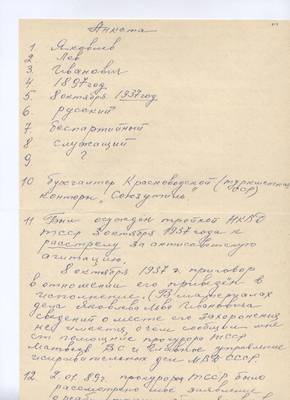 Анкета
1. Яковлев
2. Лев
3. Иванович
4. 1897 год
5. 8 октября 1937 год
6. русский
7. беспартийный
8 служащий
9 ?
10 Бухгалтер Красноводской (туркменская ССР)
конторы „Союзутиль"
11 Был осужден тройкой НКВД
ТССР 2 октября 1937 года к
расстрелу за антисоветскую
агитацию.
8 октября 1937 г. приговор
в отношении его приведён в
исполнение. (В материалах
дела Яковлева Льва Ивановича
сведений о месте его захоронения
не имеется, о чем сообщили мне
ст помощник прокурора ТССР
ВС и Главное управление
исправительных дел МВД СССР
12. 2.01.89г. прокурору ТССР было
рассмотрено мое заявление